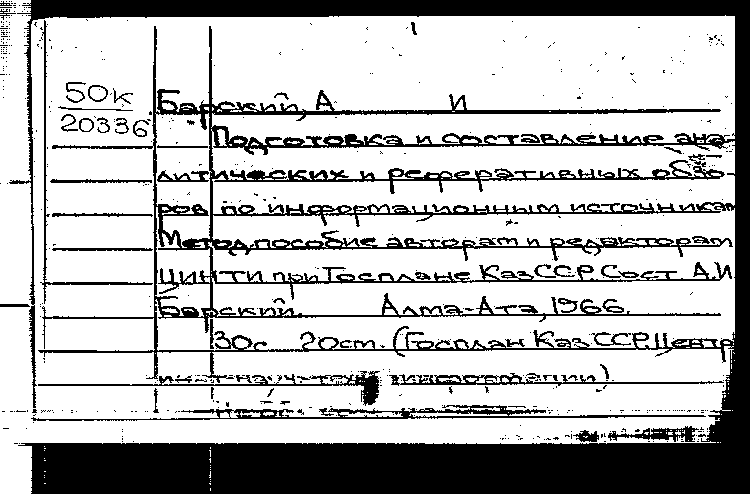 50к
20336
Барский, А И
Подготовка и составление ана-
литических и реферативных обзо-
ров по информационным источникам
Метод.пособие авторам и редакторам
ЦИНТИ при Госплане КазССР. Сост А.И
Барский. Алма-Ата, 1966.
30с 20см. (Госплан КазССР. Центр
информации)